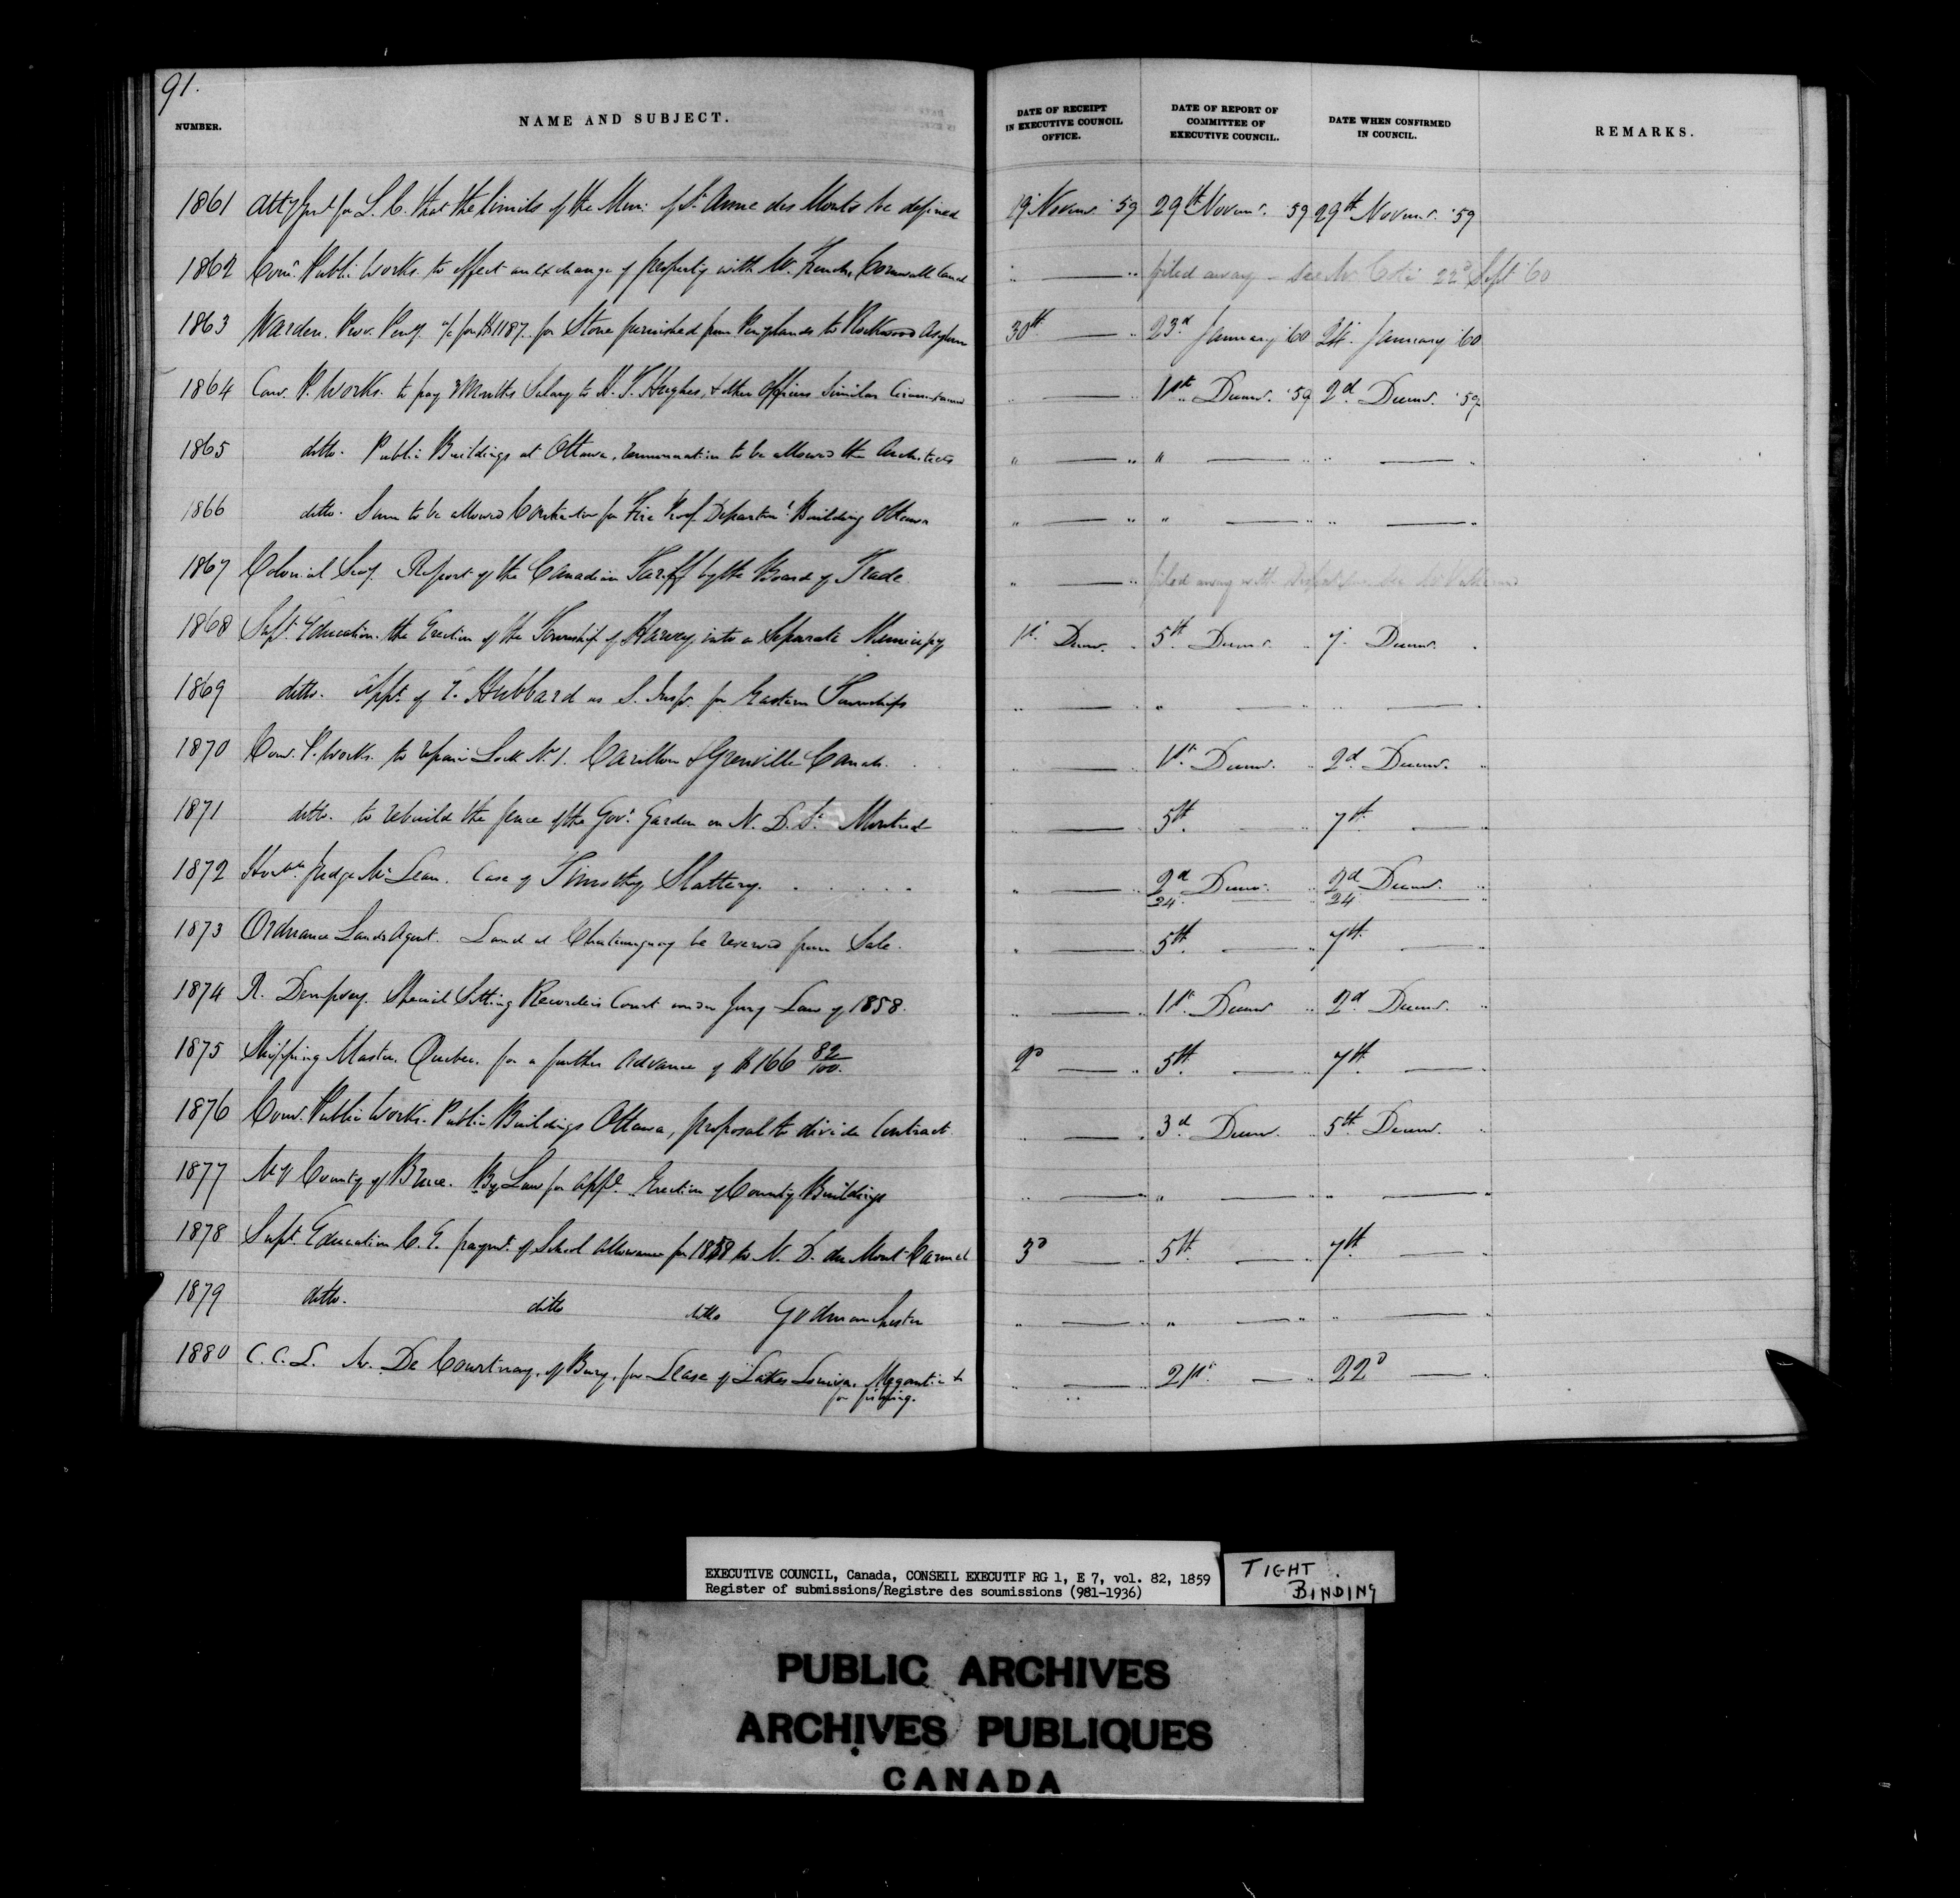 91.
NUMBER. NAME AND SUBJECT. DATE OF RECEIPT IN EXECUTIVE COUNCIL OFFICE. DATE OF REPORT OF COMMITTEE OF EXECUTIVE COUNCIL. DATE WHEN CONFIRMED IN COUNCIL. REMARKS.
1861 Atty Genl for L. C. that the limits of the Mun: of St Anne des Monts be defined 29th Novemr. '59 29th Novemr. '59
1862 Comr. Public Works. to effect an exchange of property with Mr. French, Cornwall Canal " — " filed away — See Mr. Coté 22d Sept '60
1863 Warden. Prov. Peny. a/c for $1187. for Stone furnished from Peny lands to Rockwood Asylum 30th — " 23d January '60 24 January '60
1864 Com. P. Works. to pay 3 Months Salary to H. T. Hughes, & other Officers Similar " — " 1st Decemr. '59 2d Decemr. '59
1865 ditto. Public Buildings at Ottawa, remuneration to be allowed the Architects " — " " — " " — "
1866 ditto. Sum to be allowed Contractor for Fire Proof Departmt. Building Ottawa " — " " — " " — "
1867 Colonial Secy. Report of the Canadian Tariff by the Board of Trade " — " filed away with
1868 Supt. Education. the Erection of the Township of Harvey, into a Separate Municipy 1st Decemr. " 5th Decemr. " 7 Decemr. "
1869 ditto. appt. of T. Hubbard as S. Inspr. for Eastern Townships " — " " — " " — "
1870 Com. P. Works. to repair Lock No. 1. Carillon & Grenville Canals. " — " 1st Decemr. " 2d Decemr. "
1871 ditto. to rebuild the fence of the Govt. Garden on N. D. St. Montreal " — " 5th. — " 7th. — "
1872 Honble. Judge McLean. Case of Timothy Slattery. " — " 2d Decemr. " 2d Decemr. "
24 — " 24 — "
1873 Ordnance Lands Agent. Land at Chateauguay be reserved from Sale. " — " 5th. — " 7th. — "
1874 R. Dempsey. Special Sitting Recorders Court under Jury Law of 1858. " — " 1st. Decemr " 2d Decemr. "
1875 Shipping Master. Quebec. for a further Advance of $166 82/100. 2d — " 5th. — " 7th. — "
1876 Comr. Public Works. Public Buildings Ottawa, proposal to divide Contract. " — " 3d Decemr. " 5th Decemr. "
1877 County of Bruce. By Law for appl. Erection of County Buildings " — " " — " " — "
1878 Supt. Education C. E. paymt. of School allowance for 1858 to N. D. du Mont Carmel 3d — " 5th. — " 7th — "
1879 ditto. ditto ditto Godmanchester " — " " — " " — "
1880 C. C. L. Mr. De Courtnay, of Bury, for Lease of Lakes Louisa, Megantic &
for fishing. " — " 21st. — " 22d — "
EXECUTIVE COUNCIL, Canada, CONSEIL EXECUTIF RG 1, E 7, vol. 82, 1859
Register of submissions/Registre des soumissions (981-1936)
TIGHT
BINDING
PUBLIC ARCHIVES
ARCHIVES PUBLIQUES
CANADA